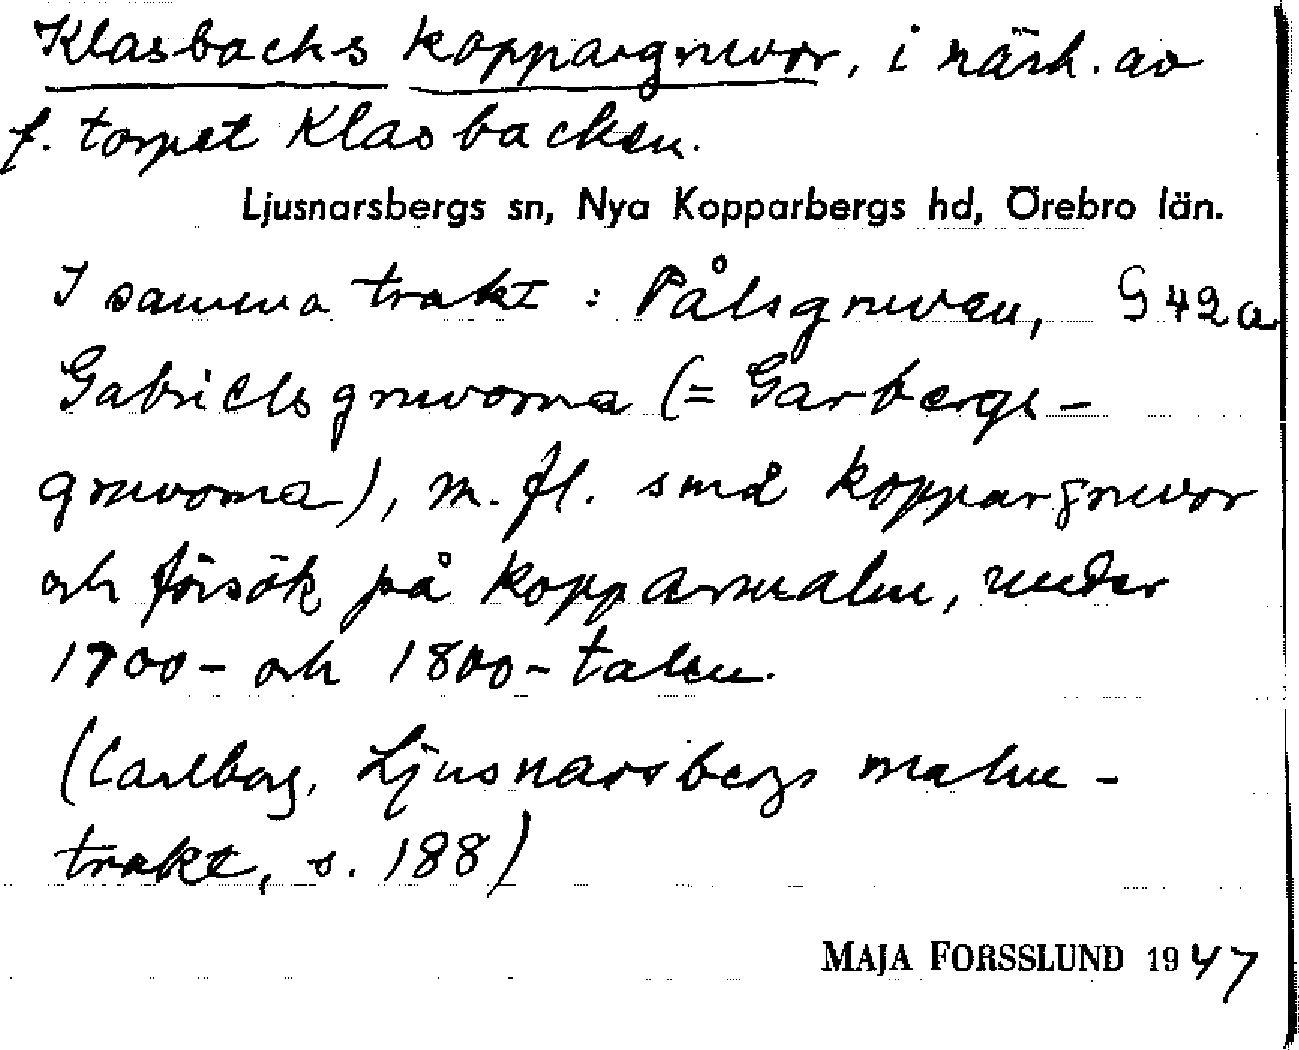 Klasbacks koppargruvor, i närh. av
f. torpet Klasbacken.
Ljusnarsbergs sn, Nya Kopparbergs hd, Örebro län.
I samma trakt : Pålsgruvan, G 42 a
Gabrielsgruvorna (= Garbergs-
gruvorna), m. fl. små koppargruvor
och försök på kopparmalm, under
1700- och 1800-talen.
(Carlborg, Ljusnarsbergs malm-
trakt, s. 188)
MAJA FORSSLUND 1947